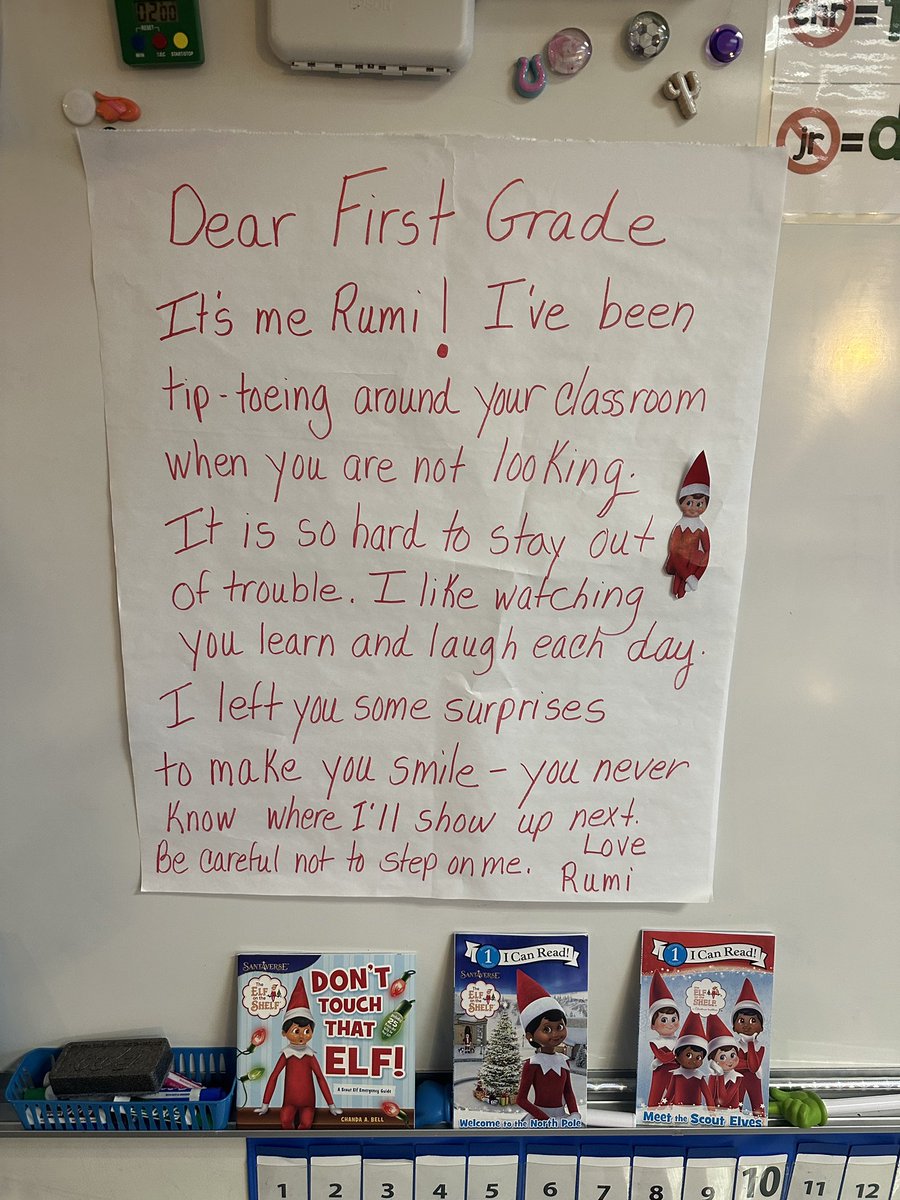 02:00
RESET
MIN
SEC
START/STOP
EPSON
chr =
jr =
Dear First Grade
It's me Rumi! I've been
tip-toeing around your classroom
when you are not looking.
It is so hard to stay out
of trouble. I like watching
you learn and laugh each day.
I left you some surprises
to make you smile - you never
know where I'll show up next.
Be careful not to step on me.
Love
Rumi
SANTAVERSE
The ELF on the SHELF
DON'T
TOUCH
THAT
ELF!
A Scout Elf Emergency Guide
CHANDA A. BELL
1 I Can Read!
SANTAVERSE
The ELF on the SHELF
Welcome to the North Pole
1 I Can Read!
The ELF on the SHELF
Meet the Scout Elves
1 2 3 4 5 6 7 8 9 10 11 12